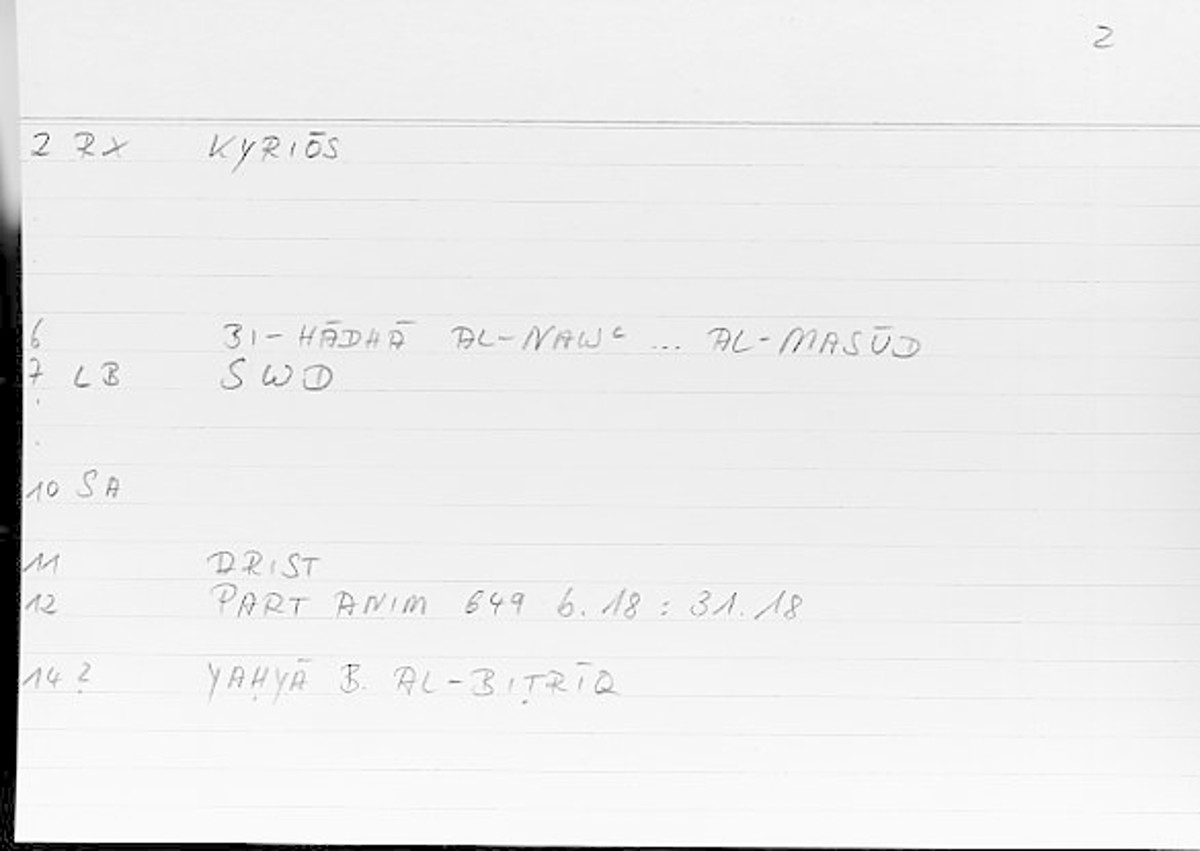 2
2 RX KYRIŌS
6 BI-HĀDHĀ AL-NAWᶜ ... AL-MASŪD
7 LB SWD
10 SA
11 ARIST
12 PART ANIM 649 b. 18 : 31. 18
14 2 YAḤYĀ B. AL-BIṬRĪQ